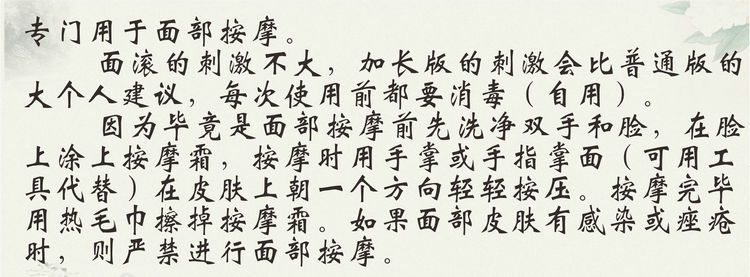 专门用于面部按摩。
面滚的刺激不大，加长版的刺激会比普通版的
大个人建议，每次使用前都要消毒（自用）。
因为毕竟是面部按摩前先洗净双手和脸，在脸
上涂上按摩霜，按摩时用手掌或手指掌面（可用工
具代替）在皮肤上朝一个方向轻轻按压。按摩完毕
用热毛巾擦掉按摩霜。如果面部皮肤有感染或痤疮
时，则严禁进行面部按摩。